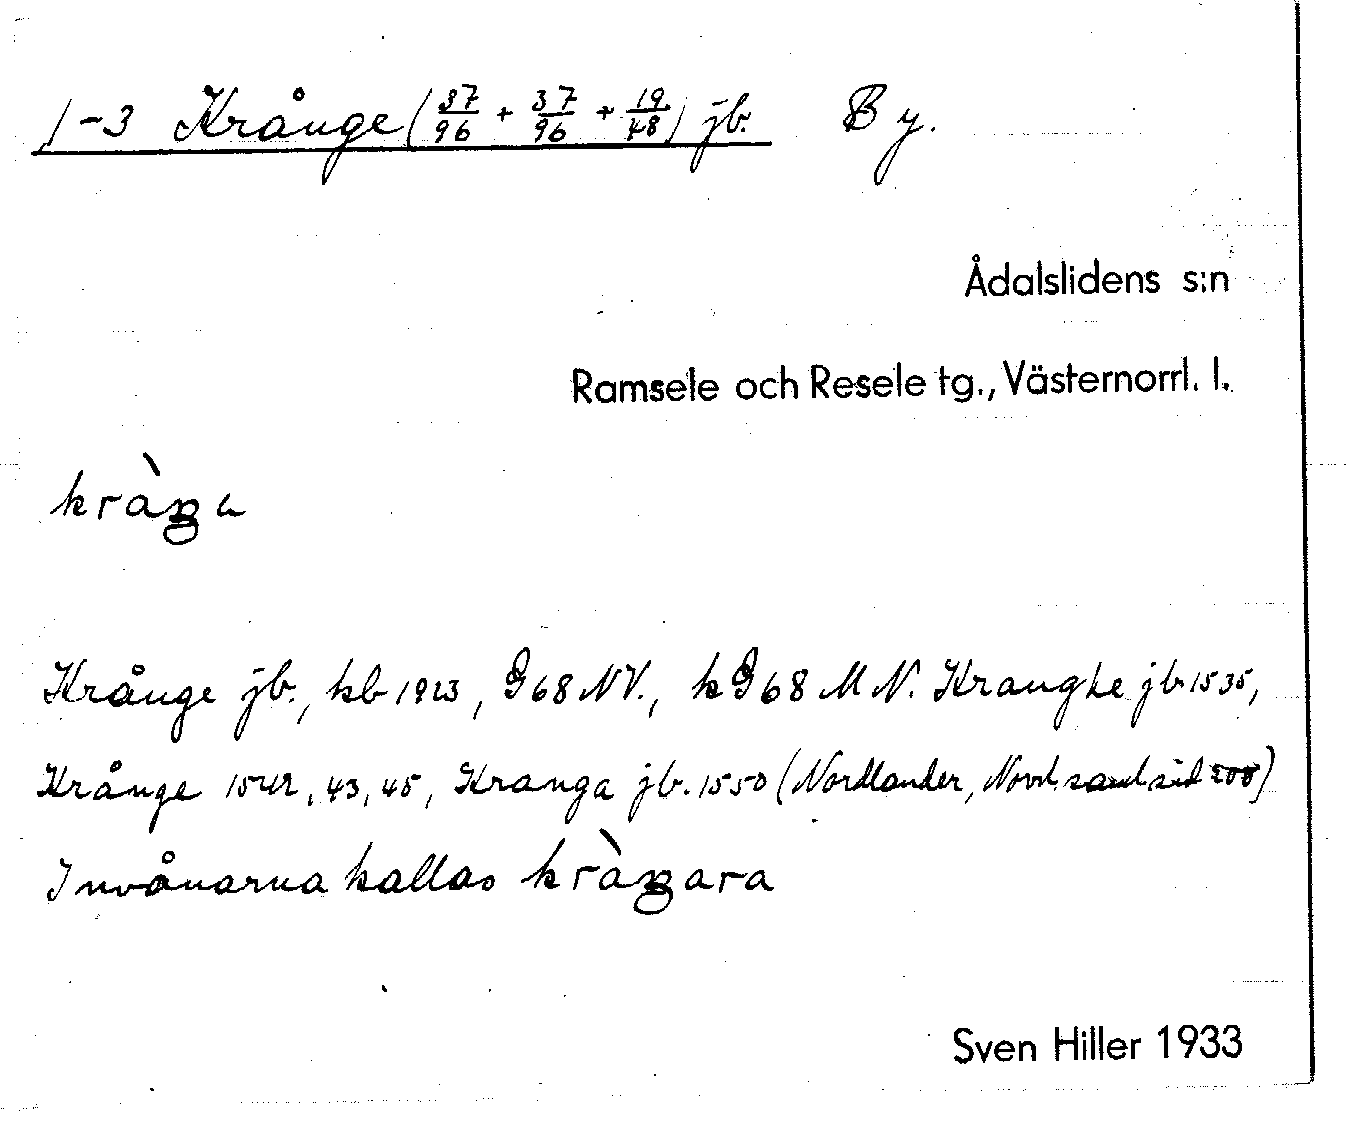 1-3 Krånge (37/96 + 37/96 + 19/48) jb. By.
Ådalslidens s:n
Ramsele och Resele tg., Västernorrl. l.
Krånge jb., kb 1923, G68 NV., k G68 M N. Kranghe jb 1535,
Krånge 1542, 43, 45, Kranga jb. 1550 (Nordlander, Norrl. saml. sid 200)
Invånarna kallas
Sven Hiller 1933